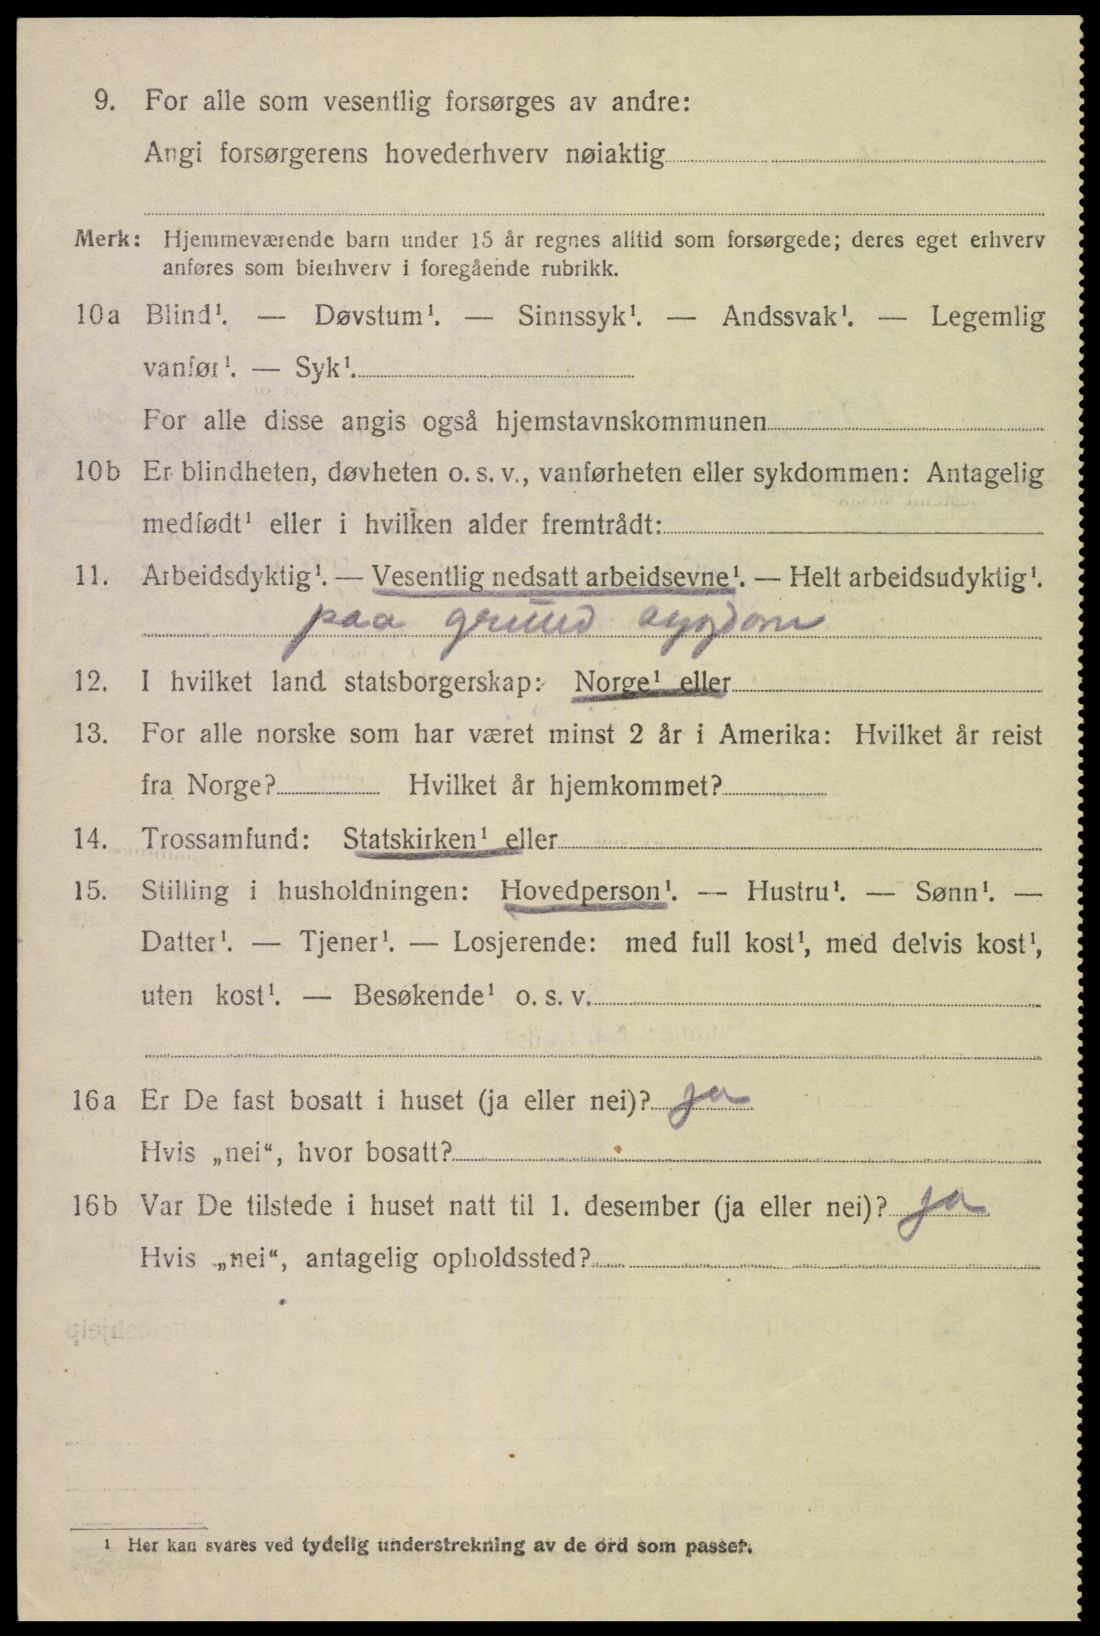 9. For alle som vesentlig forsørges av andre:
Angi forsørgerens hovederhverv nøiaktig
Merk: Hjemmeværende barn under 15 år regnes alltid som forsørgede; deres eget erhverv
anføres som bierhverv i foregående rubrikk.
10a Blind¹. — Døvstum¹. — Sinnssyk¹. — Andssvak¹. — Legemlig
vanfør¹. — Syk¹.
For alle disse angis også hjemstavnskommunen
10b Er blindheten, døvheten o. s. v., vanførheten eller sykdommen: Antagelig
medfødt¹ eller i hvilken alder fremtrådt:
11. Arbeidsdyktig¹. — Vesentlig nedsatt arbeidsevne¹. — Helt arbeidsudyktig¹.
paa grund sygdom
12. I hvilket land statsborgerskap: Norge¹ eller
13. For alle norske som har været minst 2 år i Amerika: Hvilket år reist
fra Norge? Hvilket år hjemkommet?
14. Trossamfund: Statskirken¹ eller
15. Stilling i husholdningen: Hovedperson¹. — Hustru¹. — Sønn¹. —
Datter¹. — Tjener¹. — Losjerende: med full kost¹, med delvis kost¹,
uten kost¹. — Besøkende¹ o. s. v.
16a Er De fast bosatt i huset (ja eller nei)? ja
Hvis „nei“, hvor bosatt?
16b Var De tilstede i huset natt til 1. desember (ja eller nei)? ja
Hvis „nei“, antagelig opholdssted?
¹ Her kan svares ved tydelig understrekning av de ord som passer.